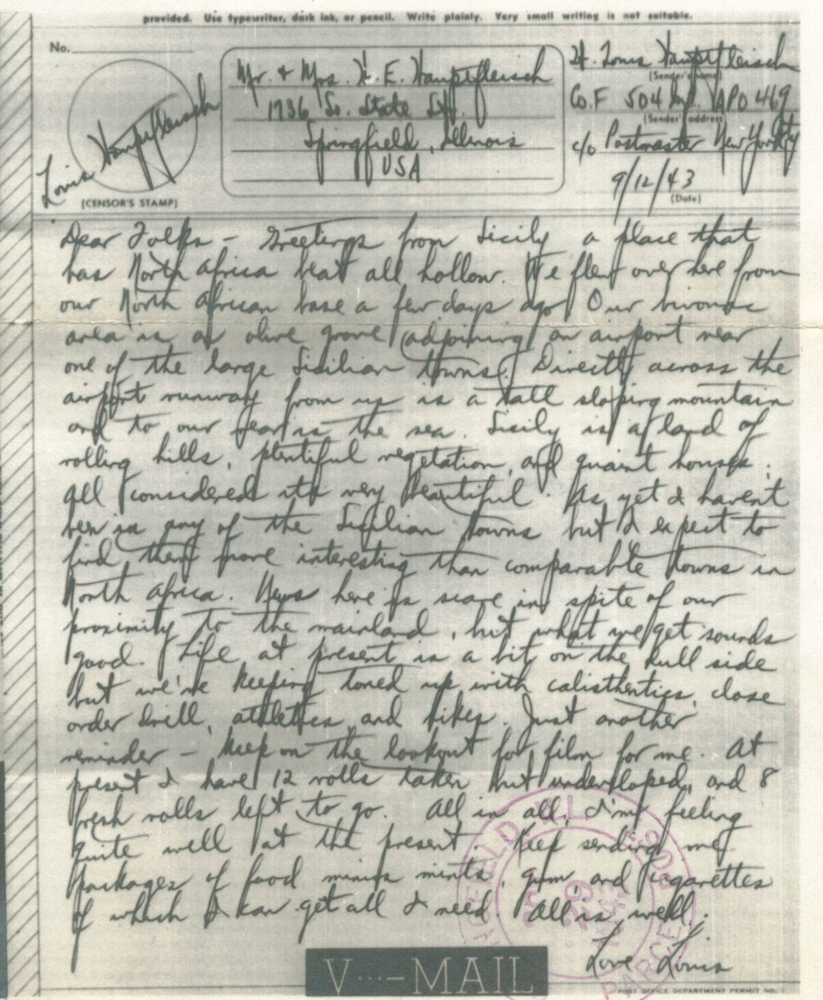 provided. Use typewriter, dark ink, or pencil. Write plainly. Very small writing is not suitable.
No.
(CENSOR'S STAMP)
Louis Hauptfleisch
Mr. & Mrs. H. E. Hauptfleisch
1736 So. State St.
Springfield, Illinois
USA
Lt. Louis Hauptfleisch
(Sender's name)
Co. F 504 APO 469
(Sender's address)
c/o Postmaster New York City
9/12/43
(Date)
Dear Folks – Greetings from Sicily a place that
has North Africa beat all hollow. We flew over here from
our North African base a few days ago. Our bivouac
area is an olive grove adjoining an airport near
one of the large Sicilian towns. Directly across the
airport runway from us is a tall sloping mountain
and to our rear is the sea. Sicily is a land of
rolling hills, plentiful vegetation, and quaint houses.
All considered its very beautiful. As yet I haven't
been in any of the Sicilian towns but I expect to
find them more interesting than comparable towns in
North Africa. News here is scarce in spite of our
proximity to the mainland, but what we get sounds
good. Life at present is a bit on the dull side
but we're keeping toned up with calisthentics, close
order drill, athletics, and hikes. Just another
reminder – keep on the lookout for film for me. At
present I have 12 rolls taken but undeveloped, and 8
fresh rolls left to go. All in all, I'm feeling
quite well at the present. Keep sending me
packages of food minus mints, gum and cigarettes
of which I can get all I need. All is well.
Love Louis
V···–MAIL
POST OFFICE DEPARTMENT PERMIT NO.